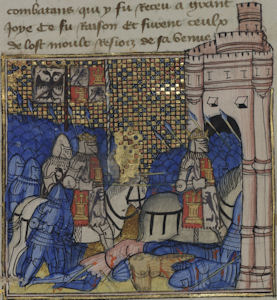 combatans qui y fu receu a grant
joye Ce fu raison Et furent ceulx
de lost moult resioiz de sa venue